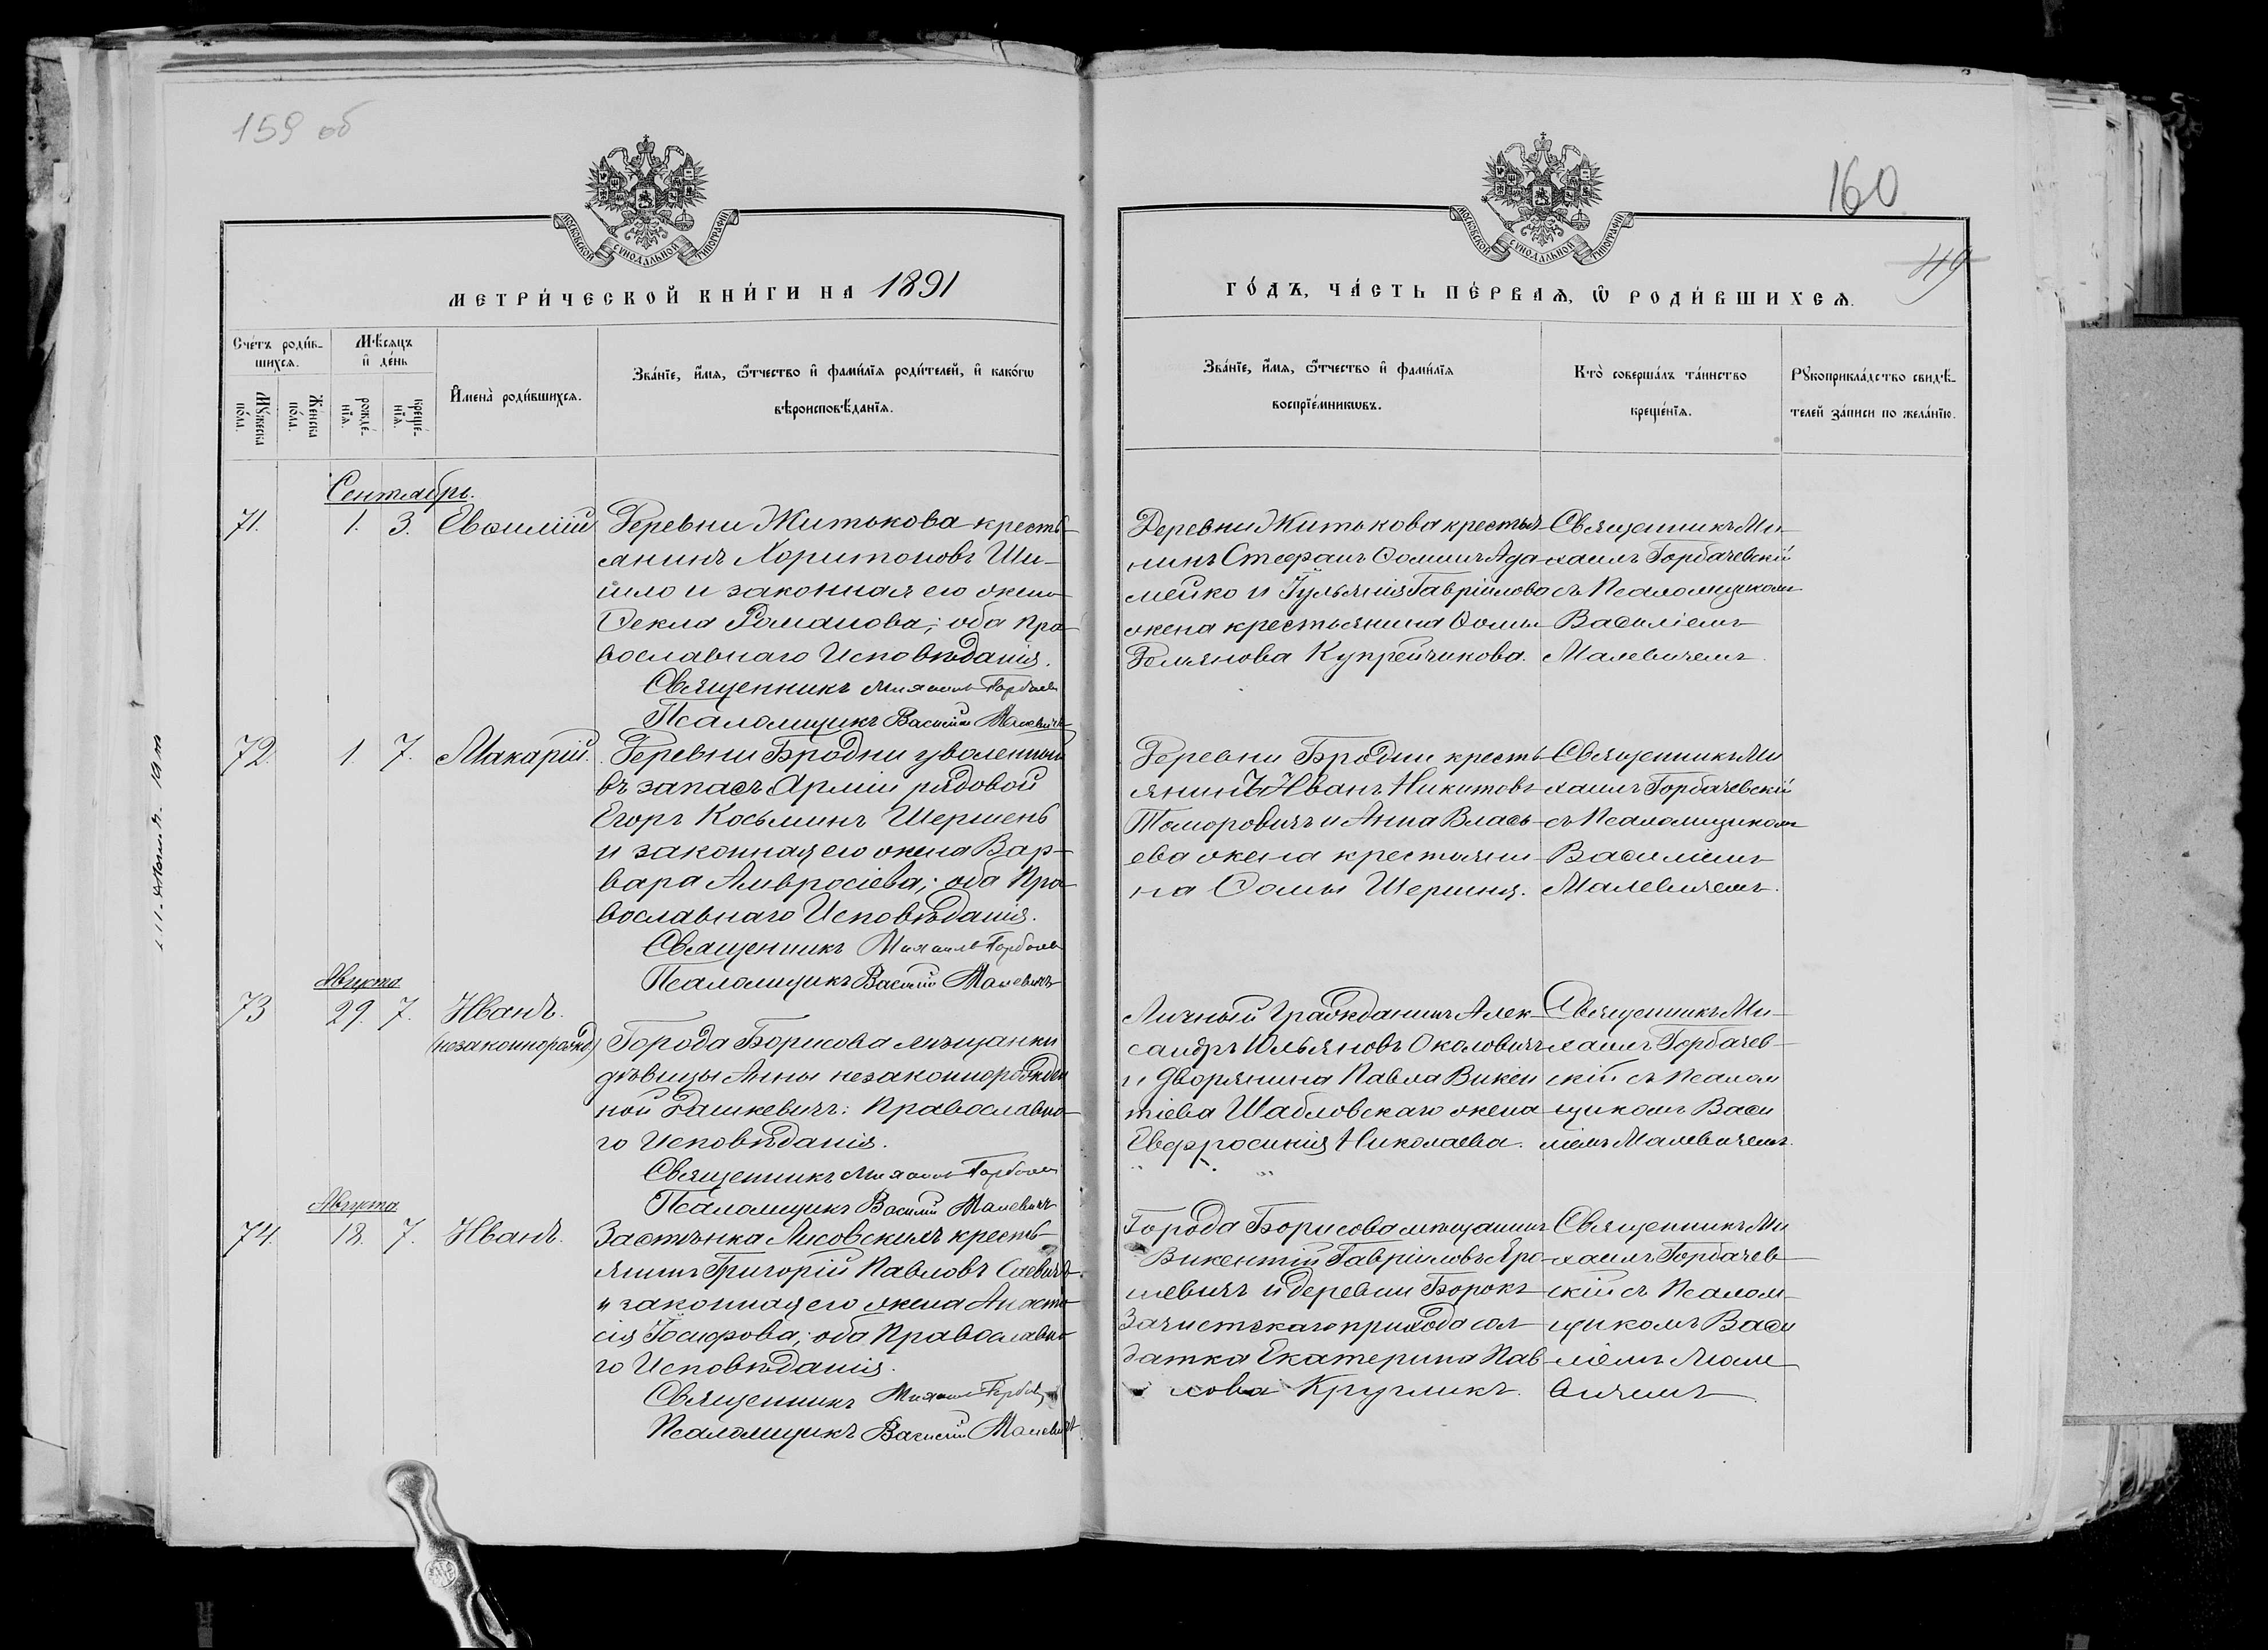 159 об
МЕТРИ́ЧЕСКОЙ КНИ́ГИ НА 1891
Сче́тъ роди́в-
шихся.
Мѣ́сяцъ
и҆ де́нь
Мꙋ́жеска
по́ла.
Же́нска
по́ла.
рожде́-
нїѧ.
креще́-
нїѧ.
И҆мена̀ роди́вшихсѧ.
Зва́нїе, и҆́мѧ, ѻ҆́тчество и҆ фами́лїѧ роди́телей, и҆ како́гѡ
вѣроисповѣ́данїѧ.
Сентябрь.
71. 1. 3. Евѳимій
Деревни Житькова кресть-
янинъ Харитоновъ Ши-
ило и законная его жена
Ѳекла Романова; оба Пра-
вославнаго Исповѣданія.
Священникъ Михаилъ Горбачев
Псаломщикъ Василій Малевичъ
72. 1. 7. Макарій.
Деревни Бродни уволенный
въ запасъ Арміи рядовой
Егоръ Косьминъ Шершень
и законная его жена Вар-
вара Амвросіева; оба Пра-
вославнаго Исповѣданія.
Священникъ Михаилъ Горбачев
Псаломщикъ Василій Малевичъ
Августа
73 29. 7. Иванъ.
(незаконорожд)
Города Борисова мѣщанки
дѣвицы Анны незаконнорожден
ной Дашкевичъ: Православна-
го Исповѣданія.
Священникъ Михаилъ Горбачев
Псаломщикъ Василій Малевичъ
Августа
74. 18. 7. Иванъ.
Застѣнка Лисовскихъ кресть-
янинъ Григорій Павловъ Саевичъ
и законная его жена Анаста-
сія Іосифова; оба Православна-
го Исповѣданія.
Священникъ Михаилъ Горбач
Псаломщикъ Василій Малевичъ
160
49
ГО́ДЪ, ЧА́СТЬ ПЕ́РВАѦ, Ѡ҆ РОДИ́ВШИХСѦ.
Зва́нїе, и҆́мѧ, ѻ҆́тчество и҆ фами́лїѧ
воспрїе́мникѡвъ.
Кто̀ соверша́лъ та́инство
креще́нїѧ.
Рꙋкоприкла́дство свидѣ́-
телей за́писи по жела́нїю.
Деревни Житькова крестья-
нинъ Стефанъ Ѳоминъ Ада
мейко и Іуліянія Гавріилова
жена крестьянина Ѳомы
Демьянова Купрейчикова.
Священникъ Ми-
хаилъ Горбачевскій
съ Псаломщикомъ
Василіемъ
Малевичемъ.
Деревни Бродни кресть-
янинъ Иванъ Никитовъ
Томоровичъ и Анна Влась-
ева жена крестьяни-
на Ѳомы Шершня.
Священникъ Ми
хаилъ Горбачевскій
съ Псаломщикомъ
Василіемъ
Малевичемъ.
Личный Гражданинъ Алек-
сандръ Ильяновъ Околовичъ
и Дворянина Павла Викен
тіева Шабловскаго жена
Евфросинія Николаева.
Священникъ Ми-
хаилъ Горбачев-
скій съ Псалом
щикомъ Васи
ліемъ Малевичемъ.
Города Борисова мѣщанинъ
Викентій Гавріиловъ Яро-
шевичъ и деревни Борокъ
Зачистскаго прихода сол
датка Екатерина Пав-
лова Кругликъ.
Священникъ Ми
хаилъ Горбачев-
скій съ Псалом-
щикомъ Васи
ліемъ Мале
вичемъ.